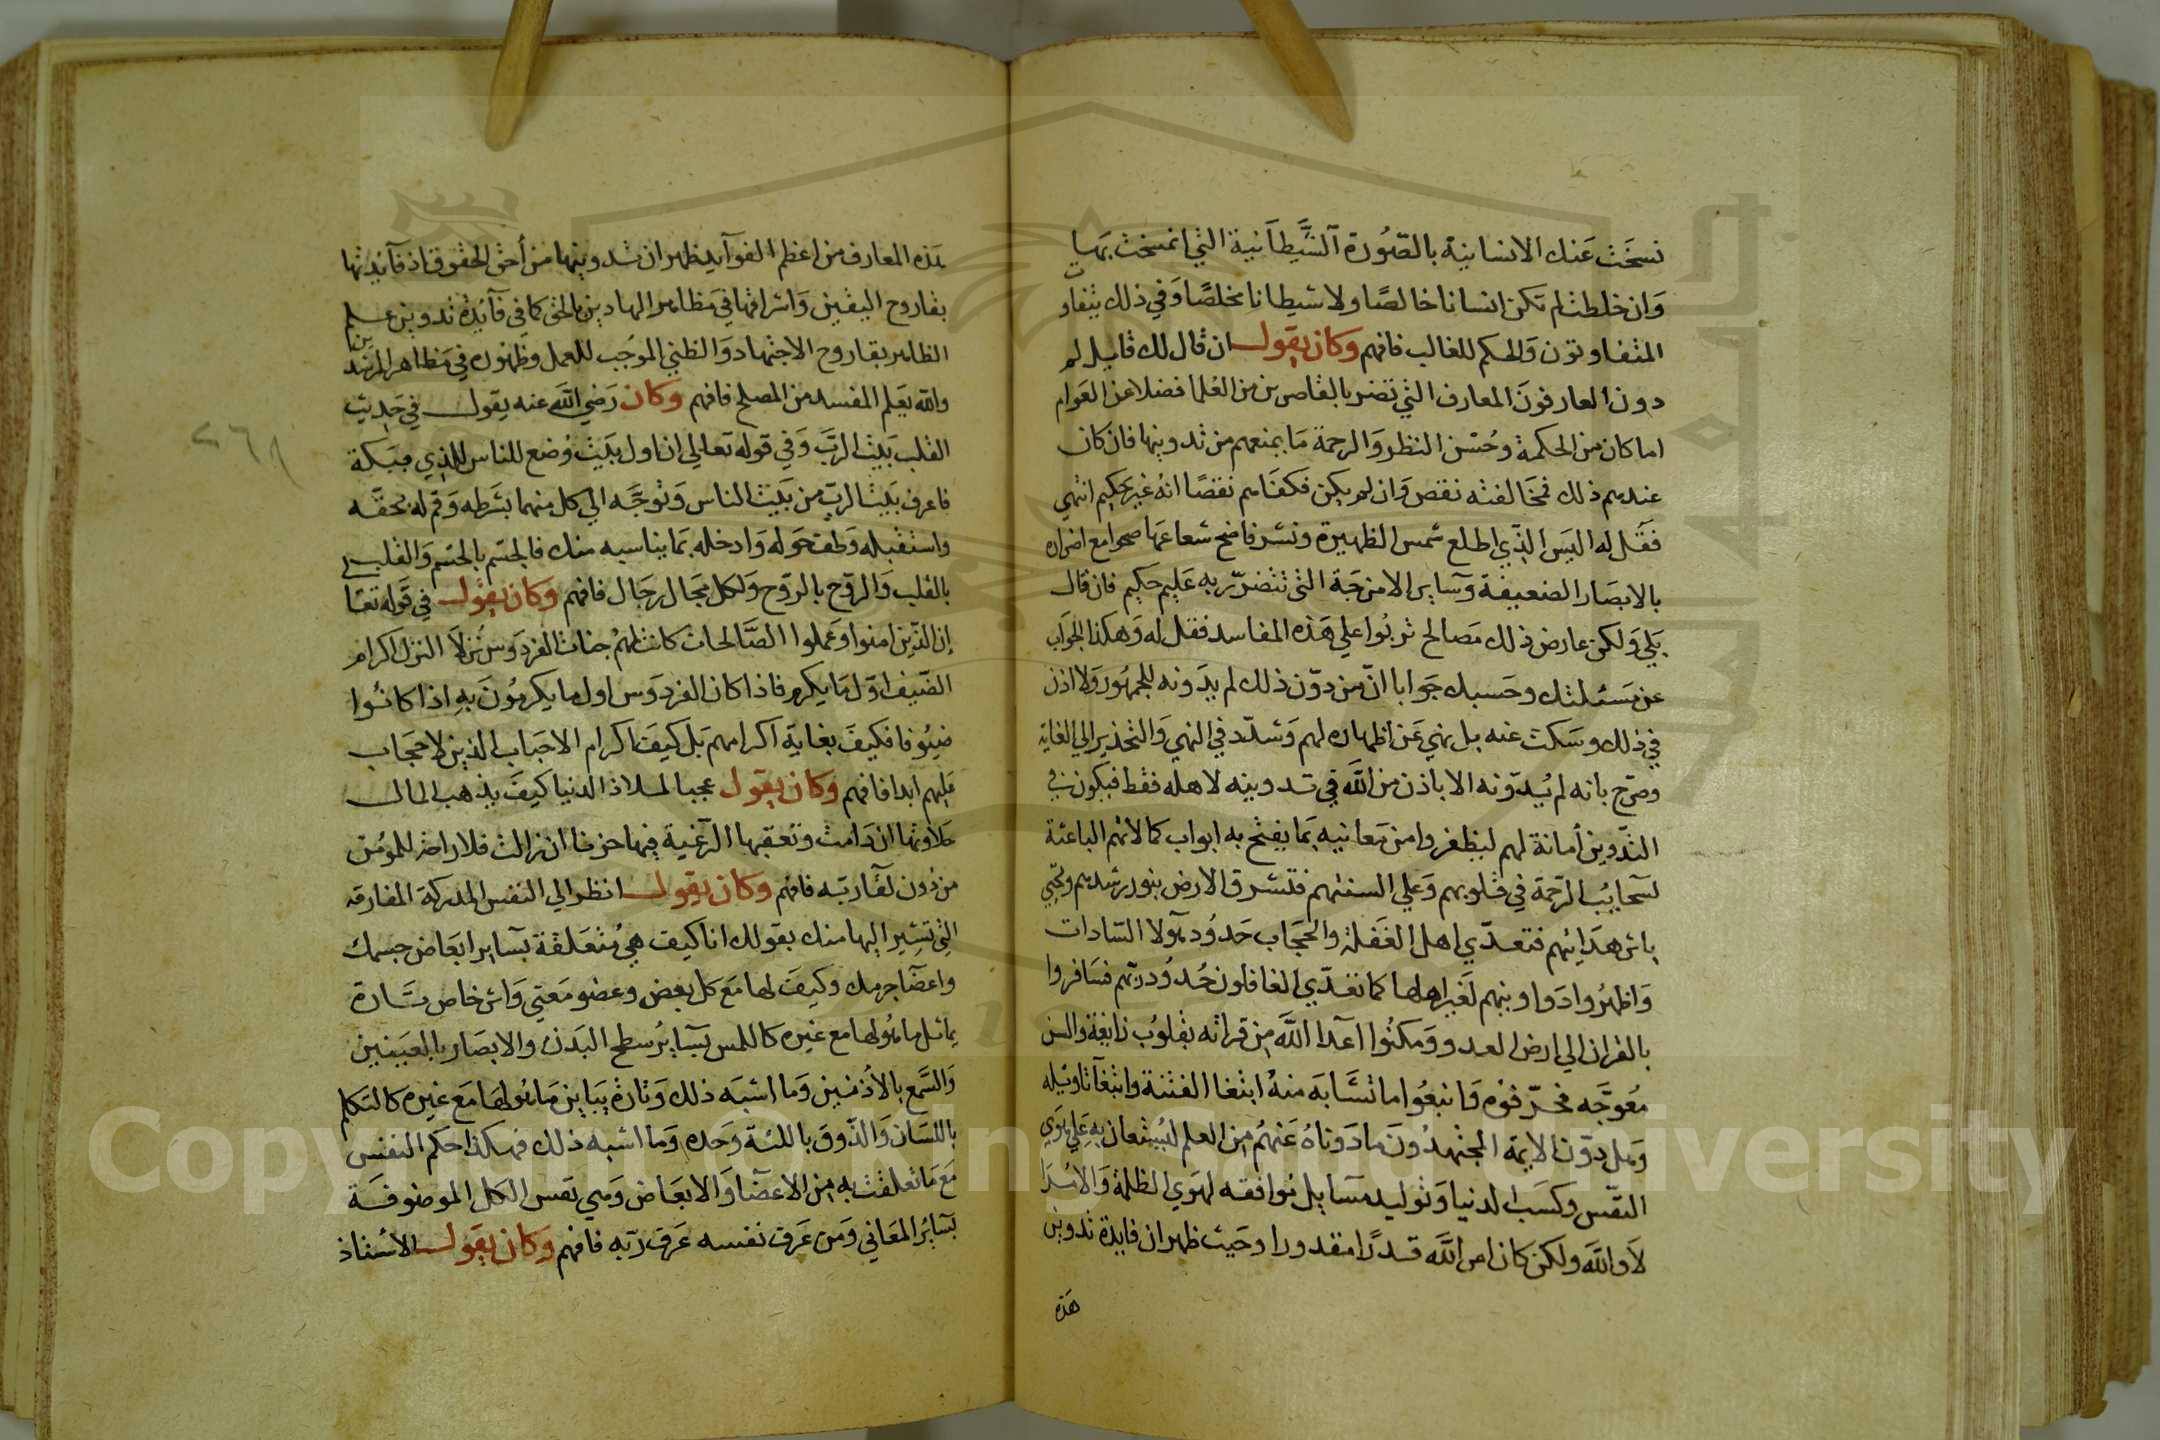 نسخت عنك الانسانية بالصورة الشيطانية التي انمسخت بها
وان خلطت لم تكن انسانا خالصا ولا شيطانا مخلصا وفي ذلك يتفاوت
المتفاوتون والحكم للغالب فافهم وكان يقول ان قال لك قايل لم
دون العارفون المعارف التي تضر بالقاصرين من العلما فضلا عن العوام
اما كان من الحكمة وحسن النظر والرحمة ما يمنعهم من تدوينها فان كان
عندهم ذلك فمخالفته نقص وان لم يكن فكفاهم نقصا انه غير حكيم انتهي
فقل له اليس الذي اطلع شمس الظهيرة ونشر فاضح شعاعها صحوا مع اضراره
بالابصار الضعيفة وساير الامزجة التي تتضرر به عليم حكيم فان قال
بلي ولكن عارض ذلك مصالح تربوا علي هذه المفاسد فقل له وهكذا الجواب
عن مسئلتك وحسبك جوابا ان من دون ذلك لم يدونه للجمهور ولا اذن
في ذلك وسكت عنه بل نهي عن اظهاره لهم وشدد في النهي والتحذير الي الغاية
وصرح بانه لم يدونه الا باذن من الله في تدوينه لاهله فقط فيكون في
التدوين أمانة لهم ليظفروا من معانيه بما يفتح به ابواب كمالاتهم الباعثة
لسحايب الرحمة في قلوبهم وعلي السنتهم فتشرق الارض بنور رشدهم وتحيي
باثر هدايتهم فتعدي اهل الغفلة والحجاب حدود هولا السادات
واظهروا دواوينهم لغير اهلها كما تعدي الغافلون حدود ربهم فسافروا
بالقران الي ارض العدو ومكنوا اعدا الله من قراته بقلوب زايغة والسن
معوجه فحرفوه واتبعوا ما تشابه منه ابتغا الفتنة وابتغا تاويله
وهل دون الايمة المجتهدون ما دوناه عنهم من العلم ليستعان به علي هوي
النفس وكسب الدنيا وتوليد مسايل موافقه لهوي الظلمة والامرا
لا والله ولكن كان امر الله قدرا مقدورا وحيث ظهر ان فايدة تدوين
هذه
هذه المعارف من اعظم الفوايد ظهر ان تدوينها من أحق الحقوق اذ فايدتها
بقا روح اليقين واشراقها في مظاهر الهادين بالحق كما في فايدة تدوين علم
الظاهر بقا روح الاجتهاد والظني الموجب للعمل وظهوره في مظاهر المرشدين
والله يعلم المفسد من المصلح فافهم وكان رضي الله عنه يقول في حديث
القلب بيت الرب وفي قوله تعالي ان اول بيت وضع للناس للذي ببكة
فاعرف بيت الرب من بيت الناس وتوجه الي كل منهما بشرطه وقم له بحقه
واستقبله وطف حوله وادخله بما يناسبه منك فالجسم بالجسم والقلب
بالقلب والروح بالروح ولكل مجال رجال فافهم وكان يقول في قوله تعا
إن الذين امنوا وعملوا الصالحات كانت لهم جنات الفردوس نزلا النزل اكرام
الضيف اول ما يكرم فاذا كان الفردوس اول ما يكرمون به اذا كانوا
ضيوفا فكيف بغاية اكرامهم بل كيف اكرام الاحباب الذين لا حجاب
عليهم ابدا فافهم وكان يقول عجبا لملاذ الدنيا كيف يذهب المال
حلاوتها ان دامت وتعقبها الرغبة فيها حزنا ان زالت فلا راحة للمؤمن
من دون لقا ربه فافهم وكان يقول انظر الي النفس المدركة المفارقه
التي تشير اليها منك بقولك انا كيف هي متعلقة بساير ابعاض جسمك
واعضا جرمك وكيف لها مع كل بعض وعضو معني واثر خاص تارة
يماثل ما هو لها مع غيره كاللمس بساير سطح البدن والابصار بالعينين
والسمع بالأذنين وما اشبه ذلك وتارة يباين ما هو لها مع غيره كالتكلم
باللسان والذوق باللثة وحده وما اشبه ذلك فهكذا حكم النفس
مع ما تعلقت به من الاعضا والابعاض وهي نفس الكل الموصوفة
بساير المعاني ومن عرف نفسه عرف ربه فافهم وكان يقول الاستاذ
٢٦٨
Copyright © King Saud University